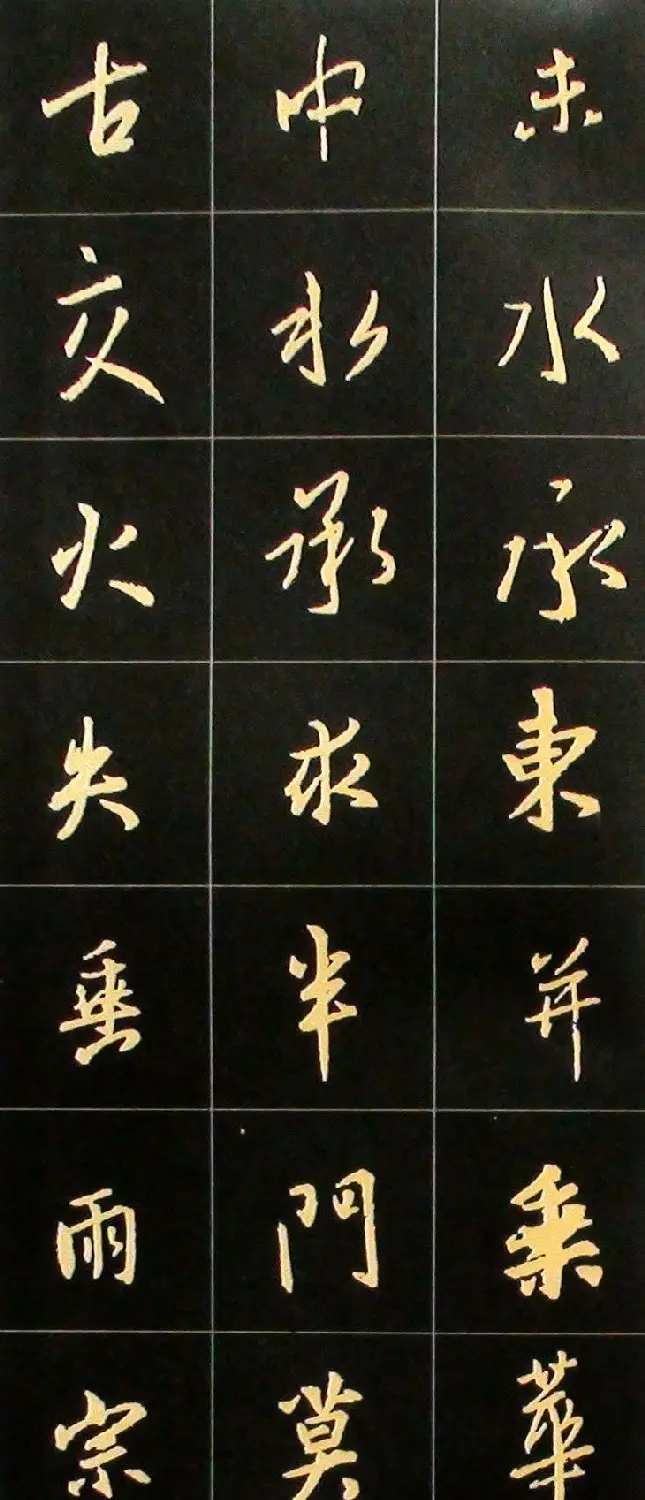 未水永東并乘華
中承求半門莫
古交火失垂雨宗